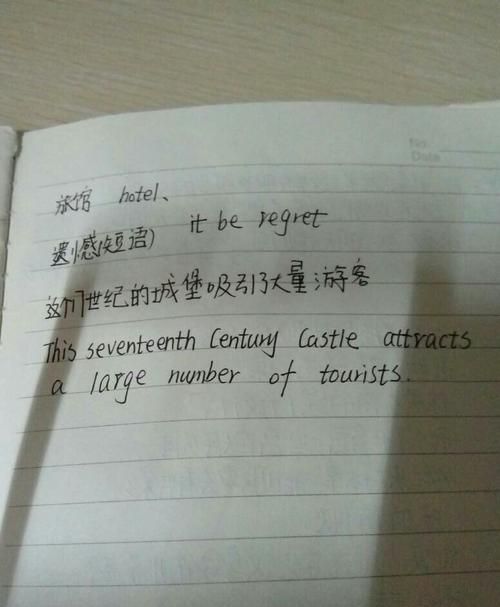 No.
Date
旅馆 hotel、
遗憾(短语) it be regret
这个17世纪的城堡吸引了大量游客
This seventeenth Century Castle attracts
a large number of tourists.